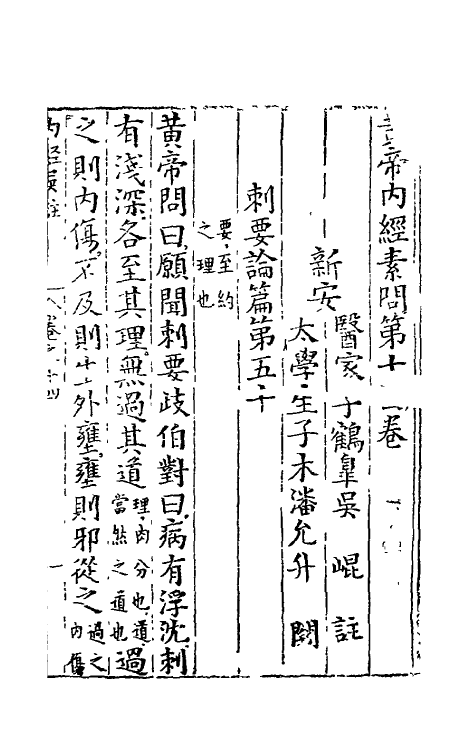 黃帝內經素問第十二卷
新安
醫家子鶴臯吳崐註
太學生子木潘允升閱
刺要論篇第五十
要至約之理也
黃帝問曰願聞刺要岐伯對曰病有浮沈刺
有淺深各至其理無過其道理肉分也道當然之道也過
之則內傷不及則生外壅壅則邪從之過之內傷
內經吳註